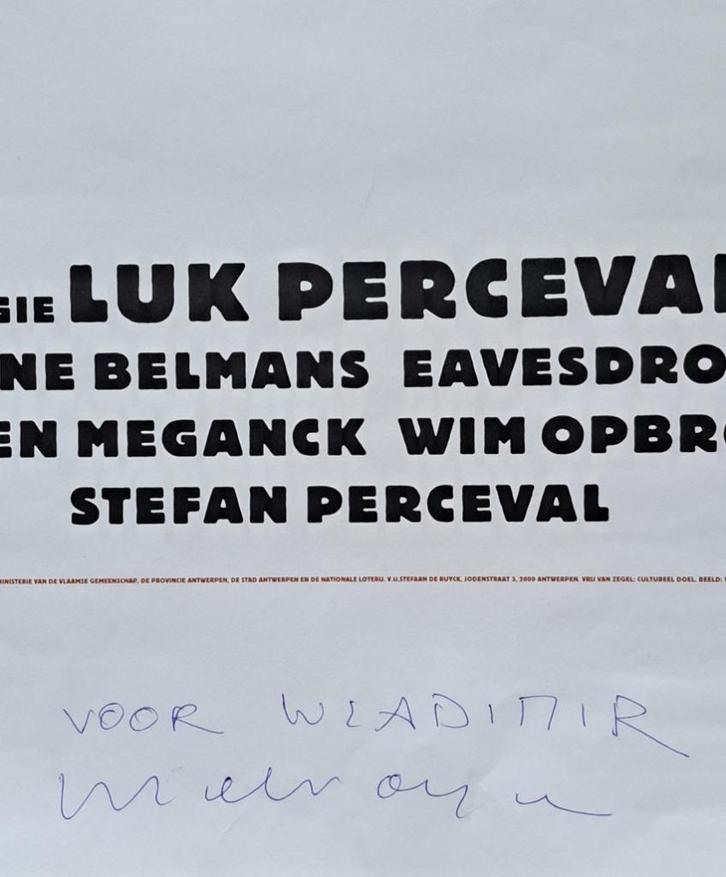 SIE LUK PERCEVAL
NE BELMANS EAVESDRO
EN MEGANCK WIM OPBR
STEFAN PERCEVAL
MINISTERIE VAN DE VLAAMSE GEMEENSCHAP, DE PROVINCIE ANTWERPEN, DE STAD ANTWERPEN EN DE NATIONALE LOTERIJ. V.U.STEFAAN DE RUYCK, JODENSTRAAT 3, 2000 ANTWERPEN. VRIJ VAN ZEGEL: CULTUREEL DOEL. BEELD:
VOOR WLADIMIR